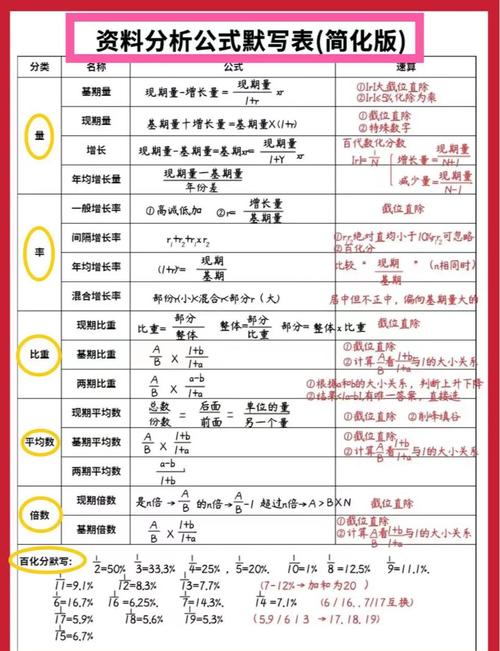 资料分析公式默写表(简化版)
分类 名称 公式 速算
量
基期量 现期量-增长量=现期量/1+r ①|r|大截位直除
②|r|≤5%化除为乘
现期量 基期量+增长量=基期量X(1+r) ①截位直除
②特殊数字
增长 现期量-基期量=基期xr=现期量/1+Y xr 百代数化分数
|r|=1/N 增长量=现期量/N+1
减少量=现期量/N-1
年均增长量 现期量一基期量/年份差
率
一般增长率 ①高减低加 ②r=增长量/基期量 截位直除
间隔增长率 r₁+r₂+r₁xr₂
②百化分
年均增长率 (1+r)ⁿ=现期/基期 比较“现期/基期”(n相同时)
混合增长率 部份r(小)<混合r<部分r(大) 居中但不正中,偏向基期量大的
比重
现期比重 比重=部分/整体 整体=部分/比重 部分=整体x比重 截位直除
基期比重 A/B X 1+b/1+a ①截位直除
②计算A/B看1+b/1+a与1的大小关系
两期比重 A/B X a-b/1+a ①根据a和b的大小关系,判断上升下降
②结果<|a-b|,有唯一答案,直接选
平均数
现期平均数 总数/份数=后面/前面=单位的量/另一个量 ①截位直除 ②削峰填谷
基期平均数 A/B X 1+b/1+a ①截位直除
②计算A/B看1+b/1+a与1的大小关系
两期平均数 a-b/1+a
倍数
现期倍数 是n倍→A/B 的n倍→A/B-1 超过n倍→A>BXN 截位直除
基期倍数 A/B X 1+b/1+a ①截位直除
②计算A/B看1+b/1+a与1的大小关系
百化分默写: 1/2=50% 1/3=33.3% 1/4=25%, 1/5=20%. 1/10=1% 1/8=12.5% 1/9=11.1%.
1/11=9.1% 1/12=8.3% 1/13=7.7% (7-12%→加和为20)
1/6=16.7% 1/16=6.25%. 1/7=14.3%. 1/14=7.1% (6/16.,7/17互换)
1/17=5.9% 1/18=5.6% 1/19=5.3% (5.9/613→17.18.19)
1/15=6.7%